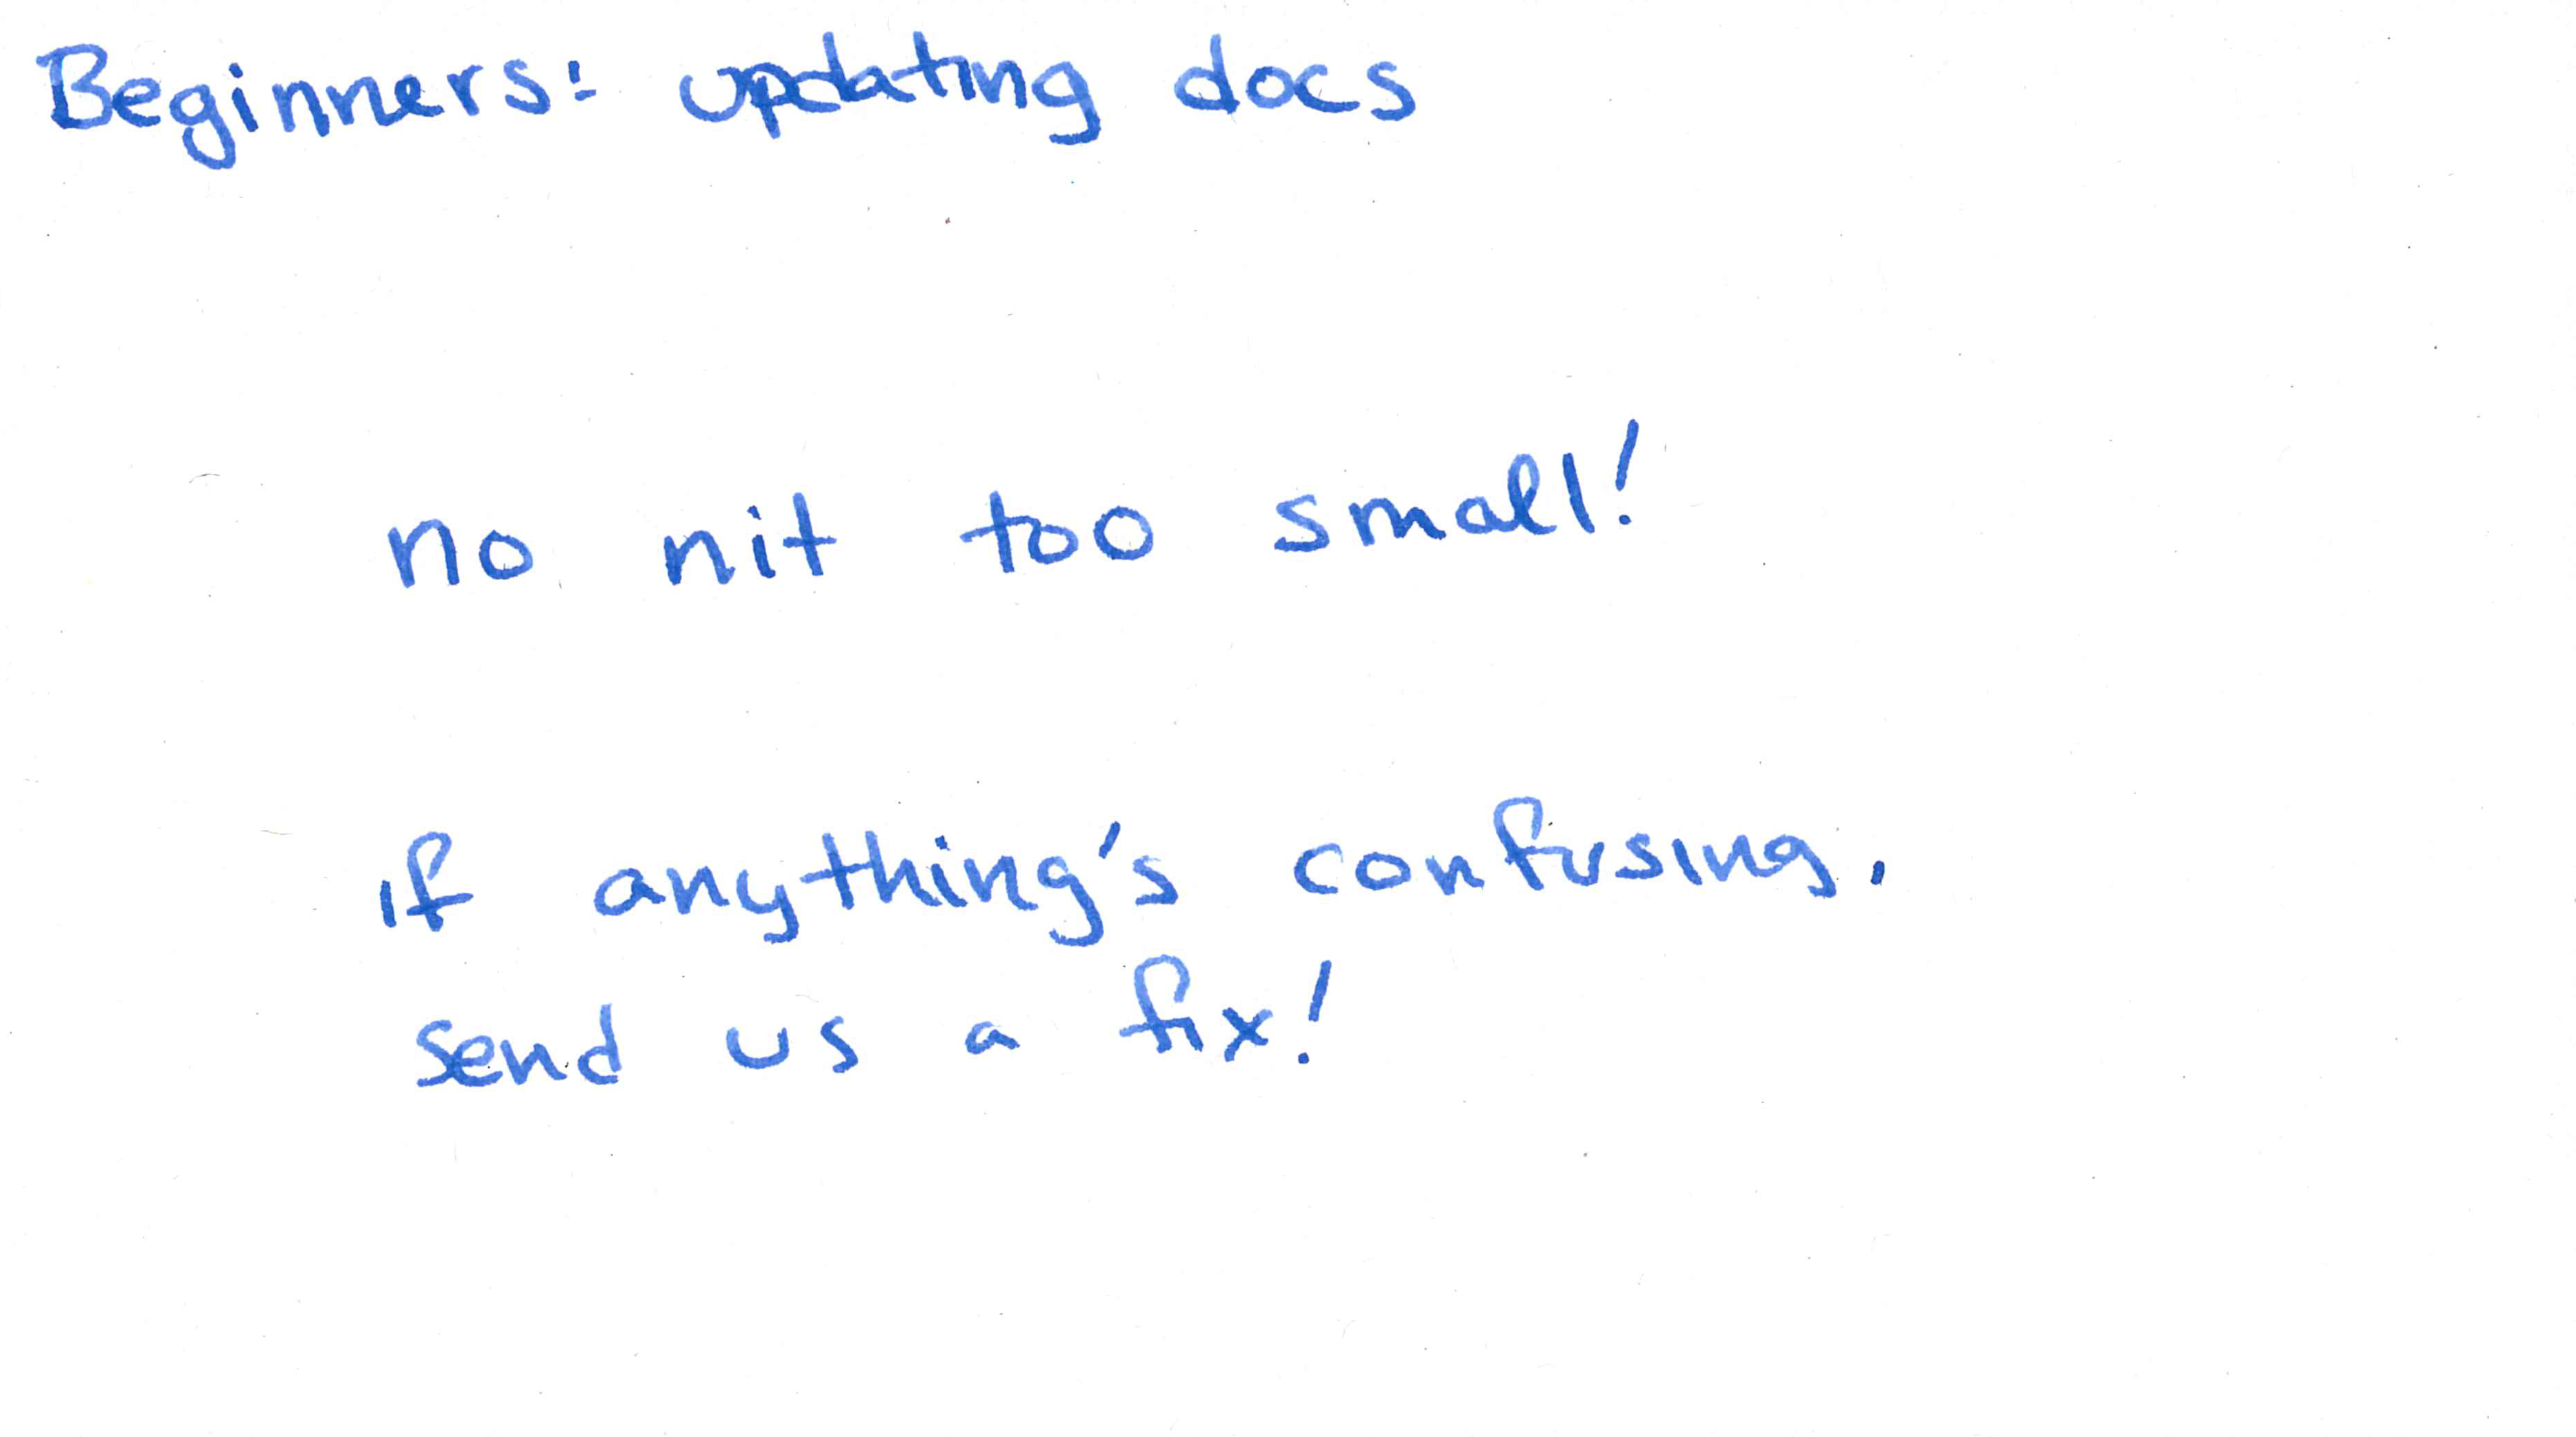 Beginners: updating docs
no nit too small!
if anything's confusing,
send us a fix!